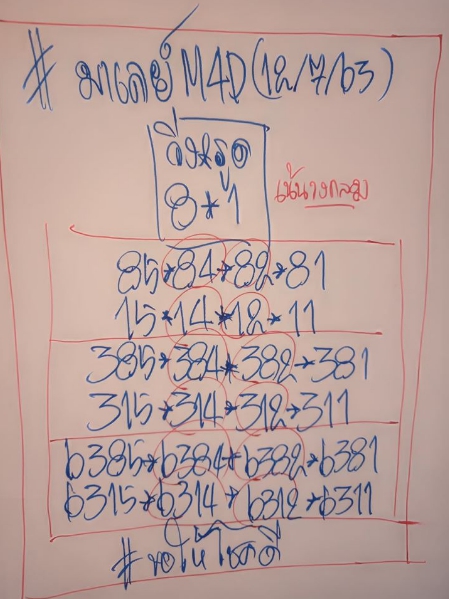 # มาเลย์ M4D (12/7/63)
วิ่งรูด
8*1
เน้นวงกลม
85*84*82*81
15*14*12*11
385*384*382*381
315*314*312*311
6385*6384*6382*6381
6315*6314*6312*6311
#ขอให้โชคดี